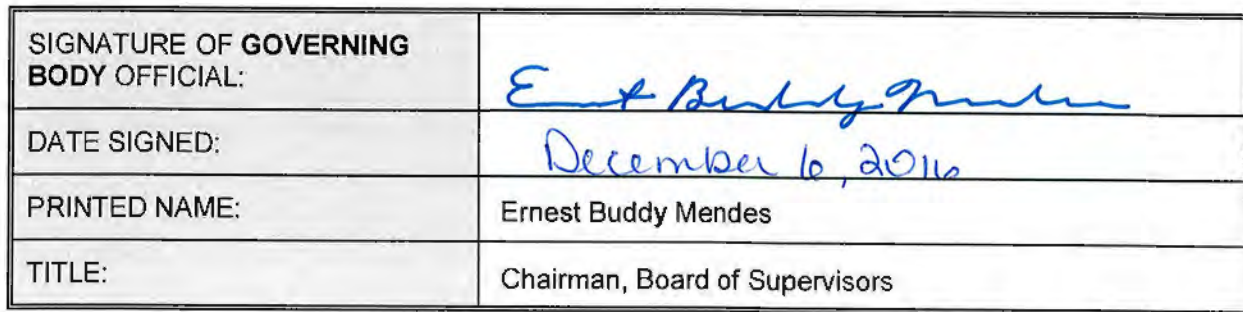 SIGNATURE OF GOVERNING
BODY OFFICIAL:
Ernest Buddy Mendes
DATE SIGNED:
December 6, 2016
PRINTED NAME:
Ernest Buddy Mendes
TITLE:
Chairman, Board of Supervisors